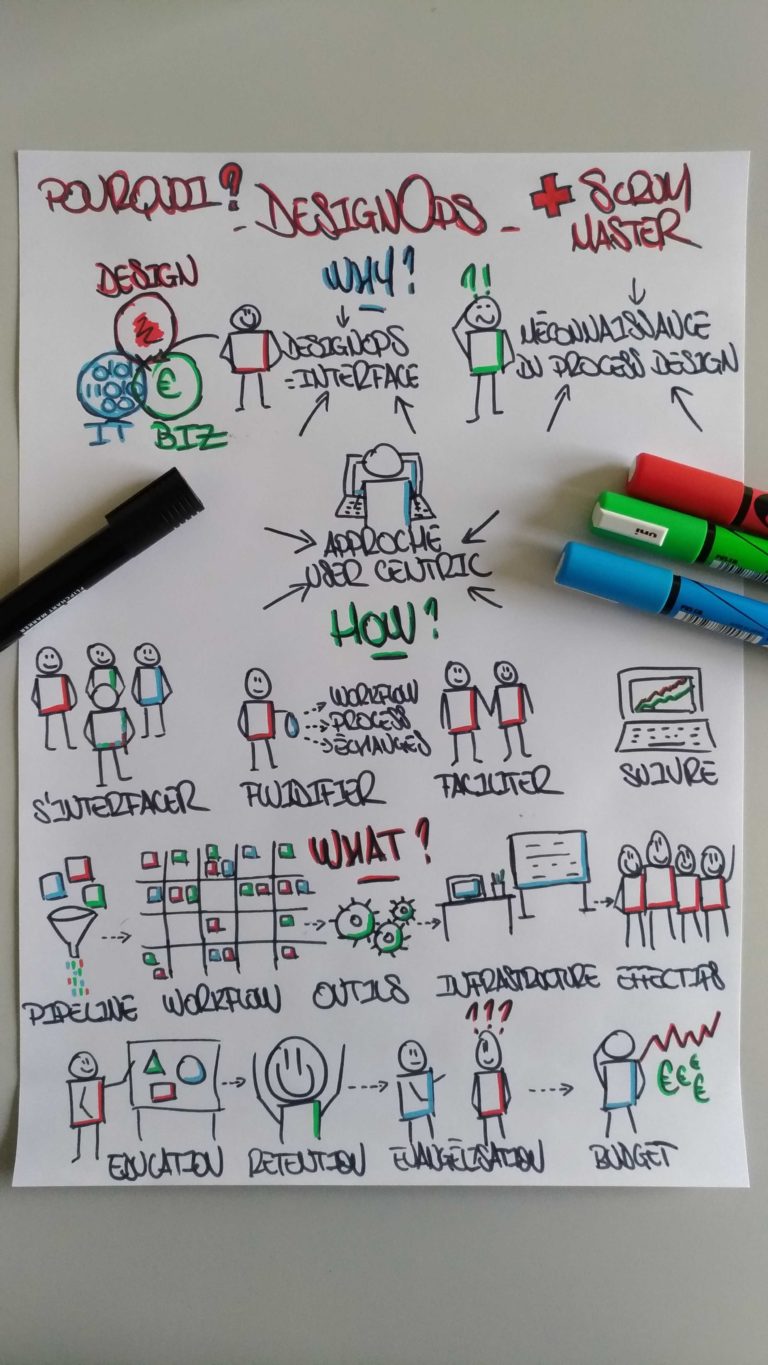 POURQUOI?
- DESIGNOPS -
+ SCRUM
MASTER
DESIGN
IT
BIZ
€
WHY?
DESIGNOPS
=INTERFACE
?!
MÉCONNAISSANCE
DU PROCESS DESIGN
APPROCHE
USER CENTRIC
uni
HOW?
S'INTERFACER
FLUIDIFIER
WORKFLOW
PROCESS
ÉCHANGES
FACILITER
SUIVRE
WHAT?
PIPELINE
WORKFLOW
OUTILS
INFRASTRUCTURE
EFFECTIFS
EDUCATION
RETENTION
???
EVANGÉLISATION
€ € € €
BUDGET